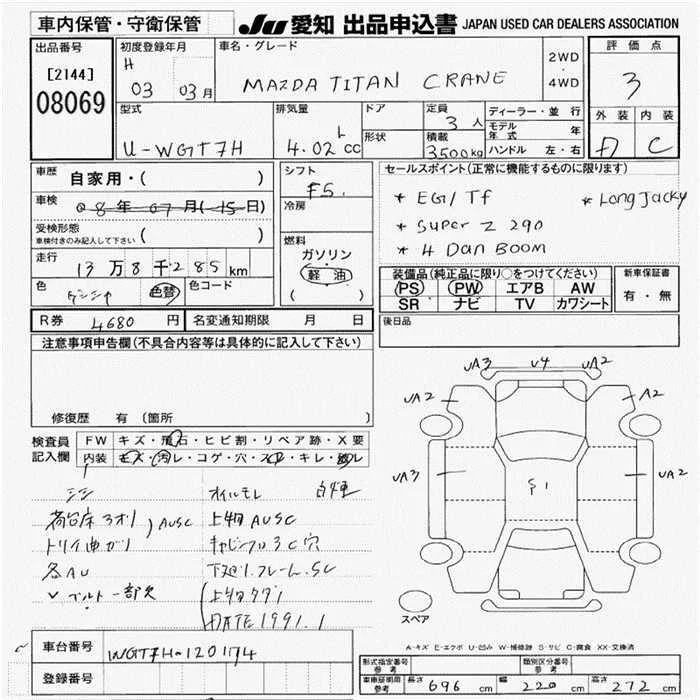 車内保管・守衛保管
JU 愛知 出品申込書 JAPAN USED CAR DEALERS ASSOCIATION
出品番号
[2144]
08069
初度登録年月
H 03 03月
車名・グレード
MAZDA TITAN CRANE
2WD
・
4WD
評価点
3
外装 内装
D C
型式
U-WGT7H
排気量
4.02 L cc
ドア
形状
定員 3 人
積載 3500kg
ディーラー・並行
モデル年式 年
ハンドル 左・右
車歴 自家用・( )
車検 8年 07月(15日)
受検形態
車検付きのみ記入して下さい ( )
走行 13万8千285km
色 色替 色コード
シフト
F5.
冷房
燃料
ガソリン
・
軽油
( )
セールスポイント(正常に機能するものに限ります)
* EGI/Tf * Long Jacky
* Super Z 290
* 4 Dan BOOM
装備品(純正品に限り○をつけてください)
PS PW エアB AW
SR ナビ TV カワシート
新車保証書
有・無
R券 4680 円 名変通知期限 月 日
後日品
注意事項申告欄(不具合内容等は具体的に記入して下さい)
修復歴 有 (箇所 )
検査員記入欄
FW キズ・飛石・ヒビ割・リペア跡・X要
内装 キズ・汚レ・コゲ・穴・スレ・キレ・
シミ オイルモレ 白煙
荷台床3オリ AUSC 上物AUSC
トリイ曲ガリ キャビンフロ3C穴
各AU 下廻リフレームSC
ベルト一部欠 上物タダノ
DATE 1991.1
UA3 U4 UA2
UA2 A2
UA3 UA2
S1
スペア
A-キズ E-エクボ U-凹み W-補修跡 S-サビ C-腐食 XX-交換済
車台番号 WGT7H-120174
登録番号
形式指定番号 参考
類別区分番号 参考
車庫証明用 参考 長さ 696 cm 幅 220 cm 高さ 272 cm